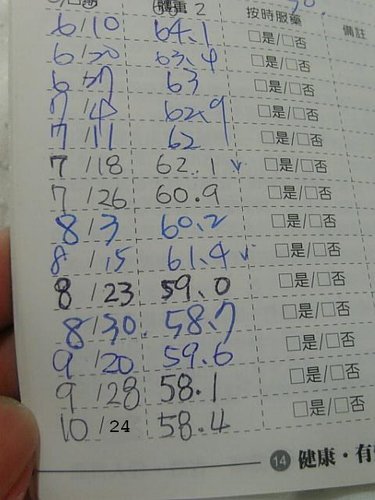 按時服藥 備註
6/10 64.1 □是/□否
6/20 63.4 □是/□否
6/27 63 □是/□否
7/5 62.9 □是/□否
7/11 62 □是/□否
7/18 62.1 ✓ □是/□否
7/26 60.9 □是/□否
8/3 60.2 □是/□否
8/15 61.4 ✓ □是/□否
8/23 59.0 □是/□否
8/30 58.7 □是/□否
9/20 59.6 □是/□否
9/28 58.1 □是/□否
10/24 58.4 □是/□否
14 健康·有